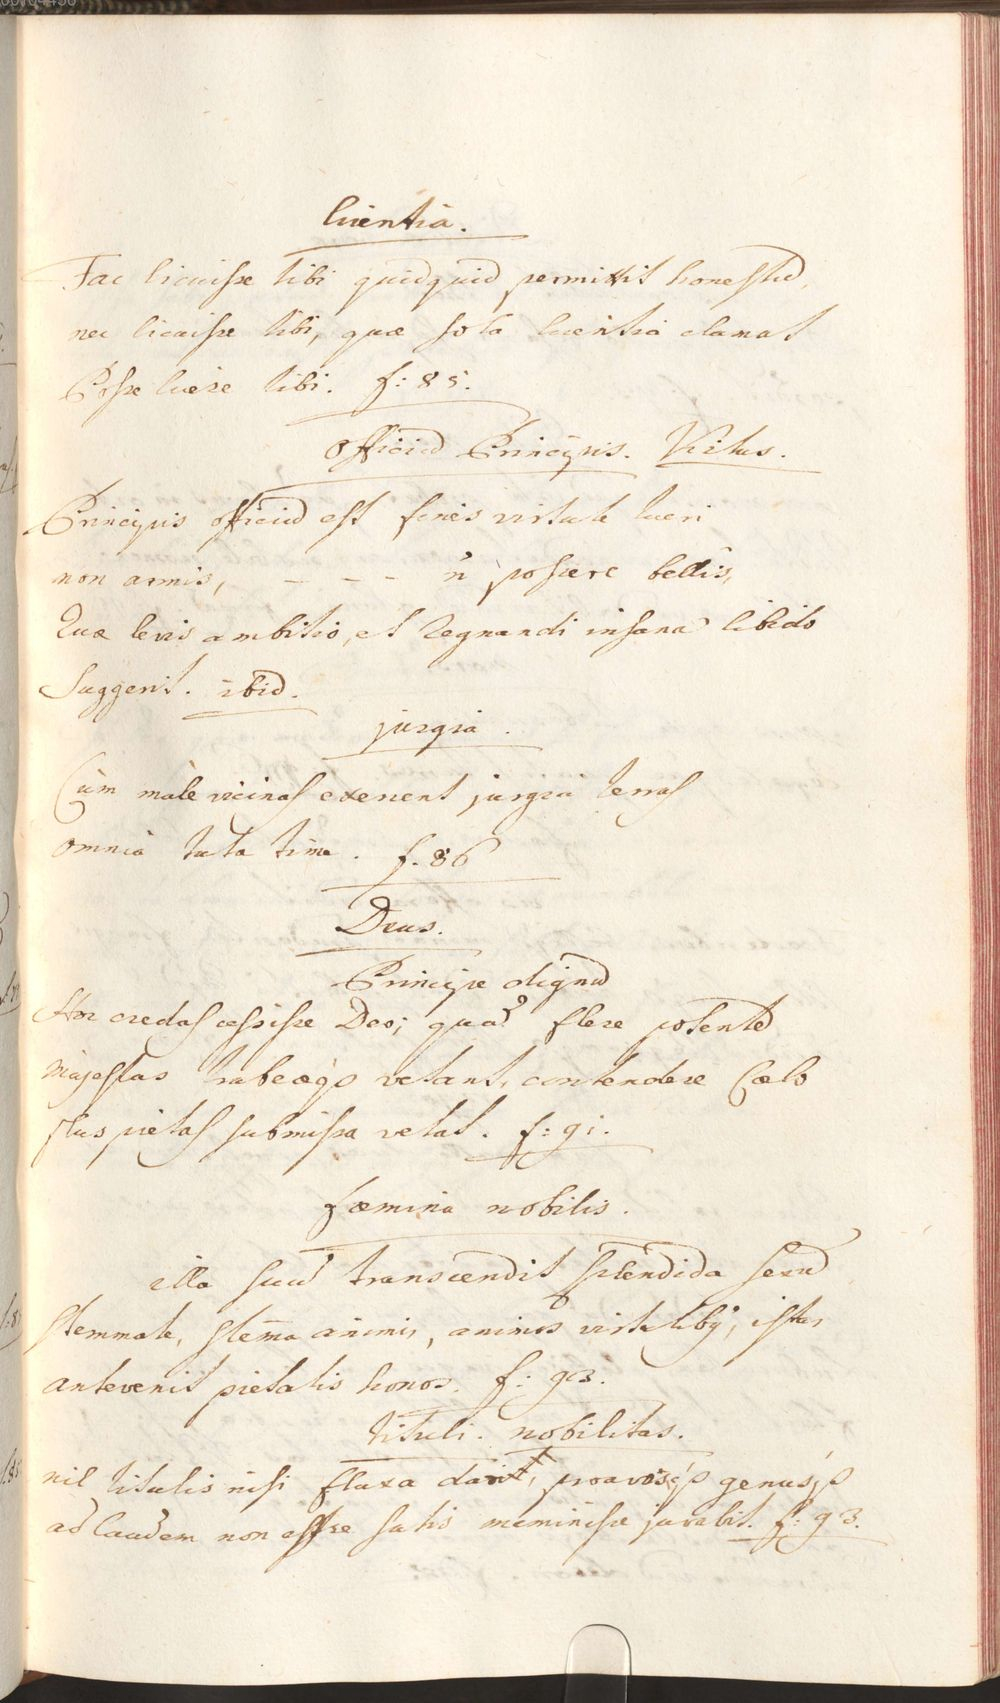 licentia.
Fac licuisse tibi quidquid permittit honestũ,
nec licuisse tibi, quæ sola licentia clamat
Posse licere tibi. f: 85.
Officiũ Principis. Virtus.
Principis officiũ est fines virtute tueri
non armis, - - - ñ poscere bellis,
Quæ levis ambitio, et regnandi insana libido
Suggerit. ibid.
jurgia.
Cùm malè vicinas exercent jurgia terras
omnia tuta time. f. 86
Deus.
Principe dignũ
Hoc credas cessisse Deo; quaũ flere potentẽ
Majestas trabeæq3 vetant, contendere Cælo
Hus pietas submissa vetat. f: 91.
fœmina nobilis.
illa suũ transcendit splendida sexũ
stemmate, stem̃a animis, animos virtutibq, istas
antevenit pietatis honos. f: 93.
tituli. nobilitas.
nil titulis nisi fluxa darit, proavosq3 genusq3
ad laudem non esse satis meminisse juvabit. f: 93.